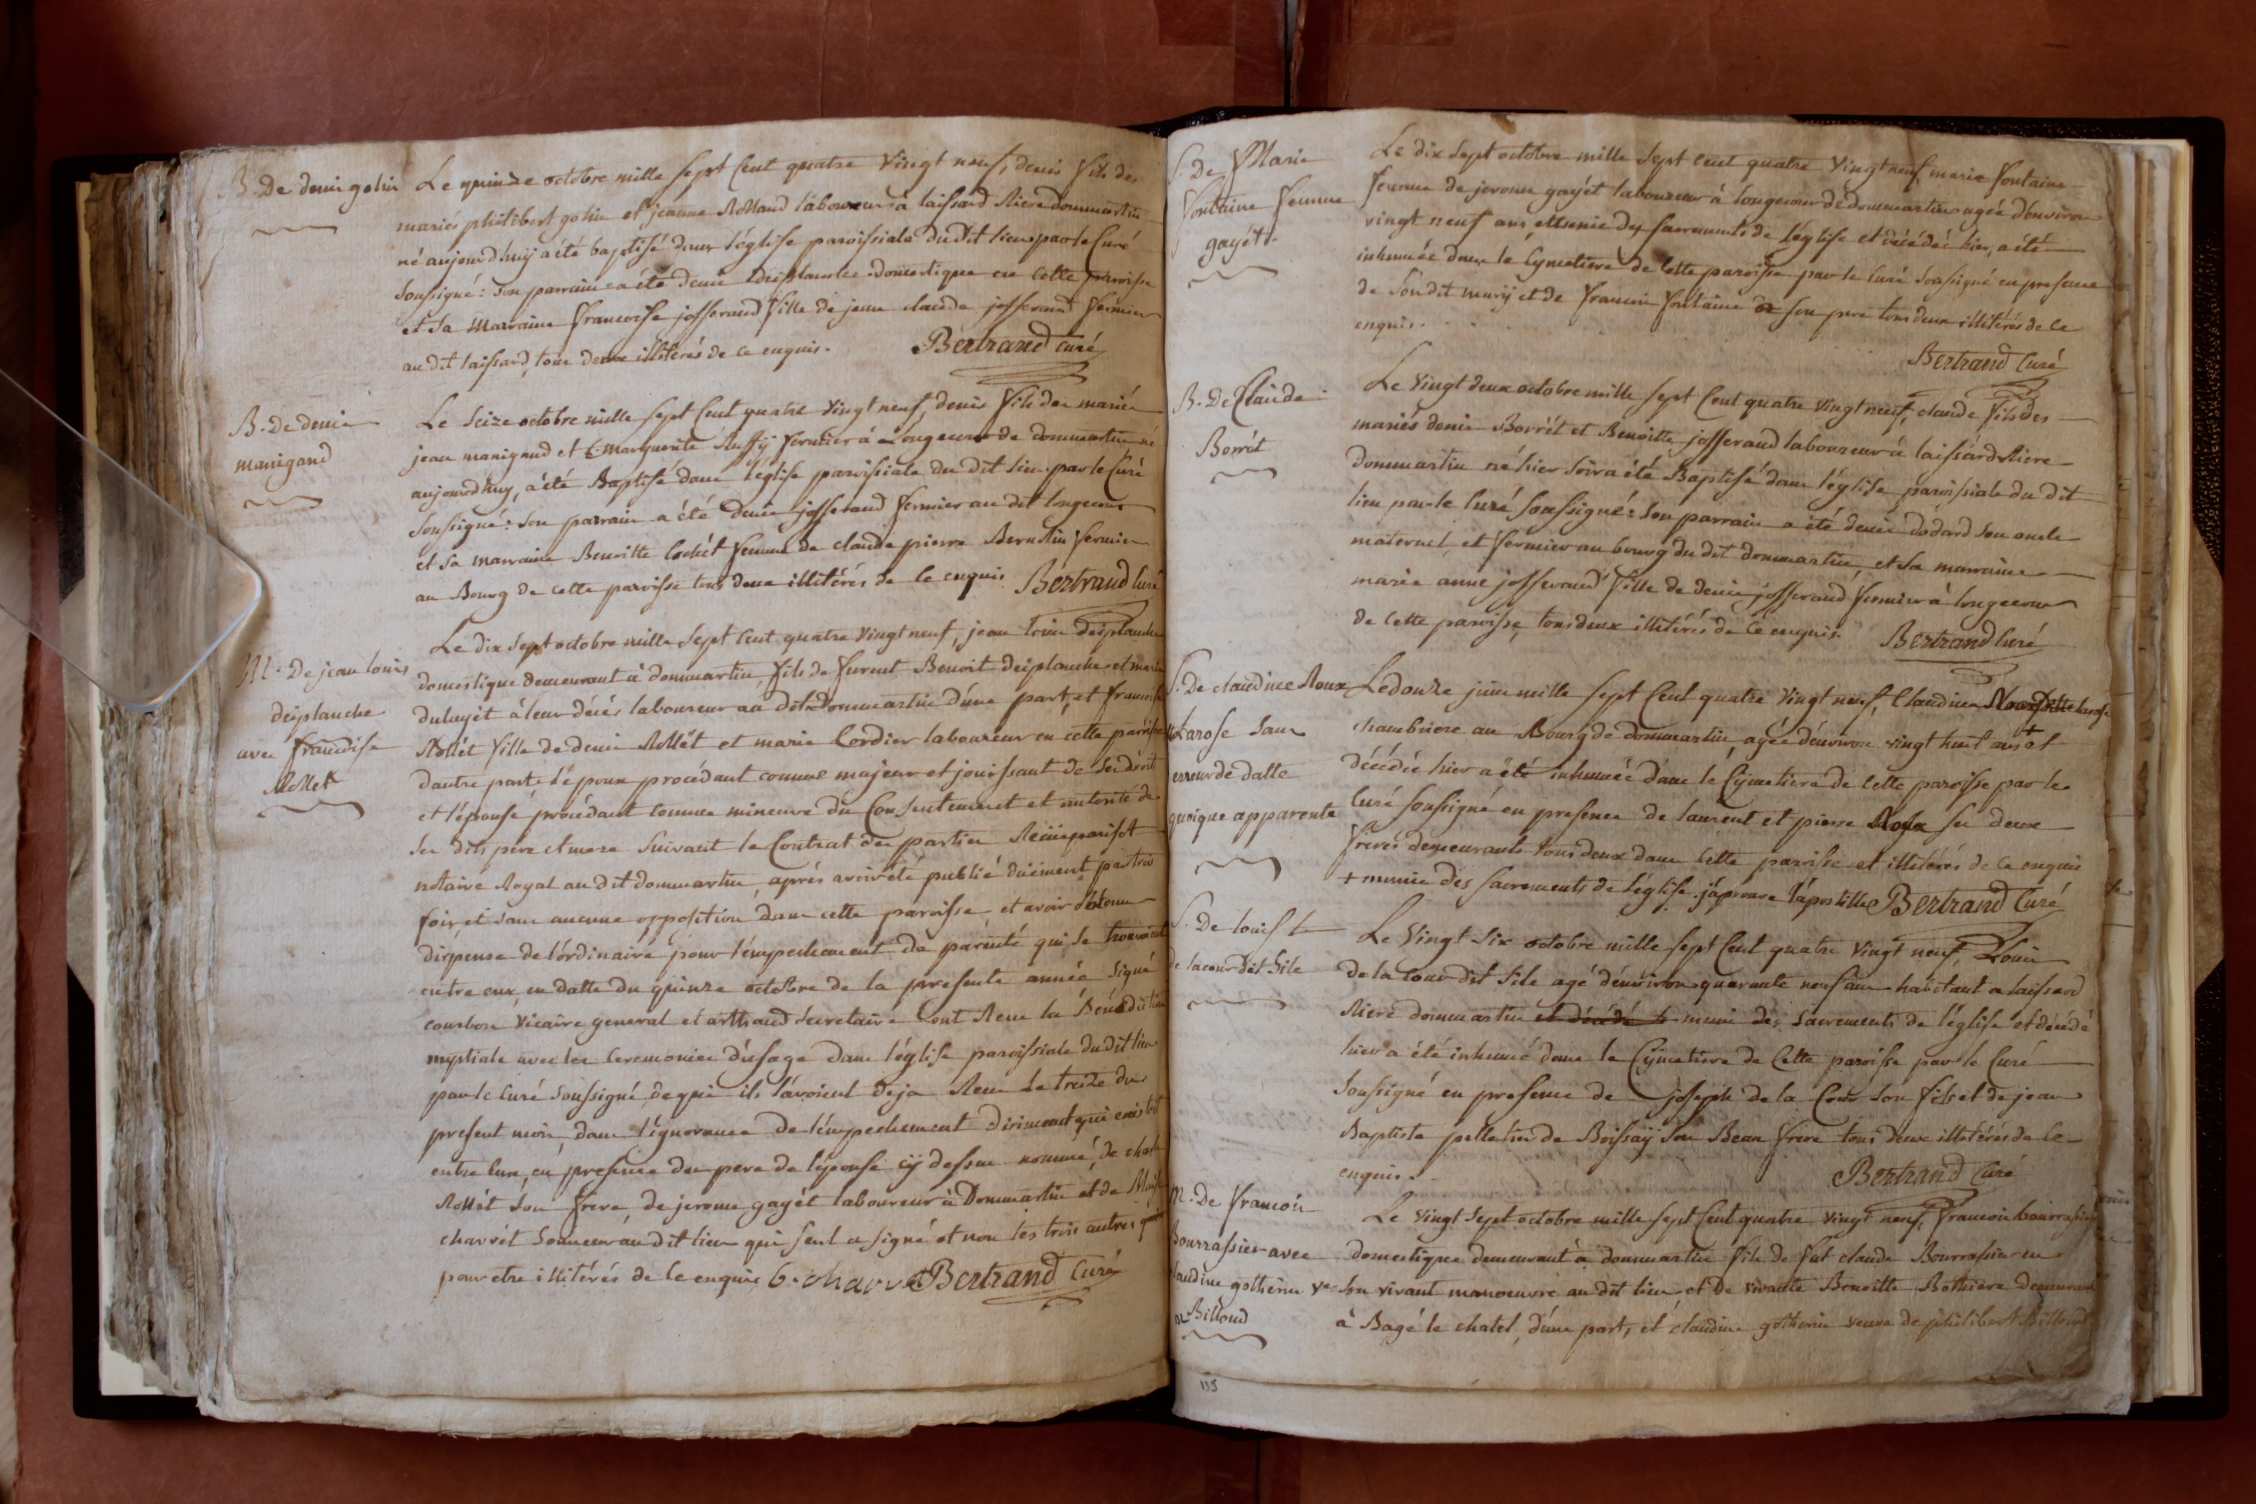 B. De denis gohin
Le quinze octobre mille sept Cent quatre vingt neuf, denis fils des
mariés philibert gohin et jeanne Rolland laboureurs à laissard Riere dommartin
né aujourd'huy a été baptisé dans l'église paroissiale du dit lieu par le Curé
soussigné: son parrain a été denis desplanche domestique en cette paroisse
et sa marraine francoise josserand fille de jean claude josserand fermier
au dit laissard, tous deux illitérés de ce enquis. Bertrand Curé
B. De denis
manigand
Le seize octobre mille sept Cent quatre vingt neuf, denis fils des mariés
jean manigand et Marguerite Ruffÿ fermier à Longecour de dommartin né
aujourd'huy, a été Baptisé dans l'église paroissiale du dit lieu par le Curé
soussigné: son parrain a été denis josserand fermier au dit longecour
et sa marraine Benoitte Cochét femme de claude pierre Bernolin fermier
au Bourg de cette paroisse tous deux illitérés de ce enquis Bertrand Curé
M. De jean louis
desplanche
avec francoise
Rollet
Le dix sept octobre mille sept Cent quatre vingt neuf, jean louis desplanche
domestique demeurant à dommartin, fils de furent Benoit desplanche et marie
duluyét à leur décés laboureur au dit dommartin d'une part, et francoise
Rollét fille de denis Rollét et marie Cordier laboureur en cette paroisse
d'autre part, l'époux procédant comme majeur et jouissant de ses droits
et l'épouse procédant comme mineure du Consentement et autorité de
ses dits père et mere suivant le Contrat des parties Reçu parisot
notaire Royal au dit dommartin, aprés avoir été publié düement par trois
fois et sans aucune opposition dans cette paroisse et avoir obtenu
dispense de l'ordinaire pour l'empechement de parenté qui se trouvoit
entre eux, en datte du quinze octobre de la presente année signé
courbon vicaire general et arthaud secretaire ont Reçu la Bénédiction
nuptiale avec les Ceremonies d'usage dans l'église paroissiale du dit lieu
par le Curé soussigné de qui ils l'avoient deja Reçu le treize du
present mois, dans l'ignorance de l'empechement dirimant qui existoit
entre eux, en presence du pere de l'épouse cÿ dessus nommé, de
Rollét son frere, de jerome gayét laboureur à Dommartin et de
charvét sonneur au dit lieu qui seul a signé et non les trois autres
pour etre illitérés de ce enquis b. charvet Bertrand Curé
S. De Marie
fontaine femme
gayét.
Le dix sept octobre mille sept cent quatre vingt neuf, marie fontaine
femme de jerome gayét laboureur à longecour de dommartin agée d'environ
vingt neuf ans et munie des sacrements de l'église et décédée hier, a été
inhumée dans le Cÿmetiere de Cette paroisse par le Curé soussigné en presence
de son dit marÿ et de francois fontaine son pere tous deux illitérés de ce
enquis.
Bertrand Curé
B. De Claude
Borrét
Le vingt deux octobre mille sept Cent quatre vingt neuf, claude fils des
mariés denis Borrét et Benoitte josserand laboureur à laissard Riere
dommartin né hier soir a été Baptisé dans l'église paroissiale du dit
lieu par le Curé soussigné: son parrain a été denis dodard son oncle
maternel, et fermier au bourg du dit dommartin, et sa marraine
marie anne josserand fille de denis josserand fermier à longecour
de cette paroisse, tous deux illitérés de ce enquis. Bertrand Curé
S. De claudine Roux
Larose sans
erreur de datte
quoique apparente
Le douze juin mille sept Cent quatre vingt neuf, Claudine Roux ditte larose
chambriere au Bourg de dommartin, agée d'environ vingt huit ans + et
décédée hier a été inhumée dans le Cÿmetiere de Cette paroisse par le
Curé soussigné en presence de laurent et pierre Roux ses deux
freres demeurants tous deux dans Cette paroisse et illitérés de ce enquis
+ munie des sacrements de l'église. j'aprouve l'apostille Bertrand Curé
S. De louis
de lacour dit Sile
Le vingt six octobre mille sept Cent quatre vingt neuf, Louis
de la Cour dit Sile agé d'environ quarante neuf ans habitant a laissard
Riere dommartin et décédé muni des sacrements de l'église et décédé
hier a été inhumé dans le Cÿmetiere de Cette paroisse par le Curé
soussigné en presence de joseph de la Cour son fils et de jean
Baptiste de Boissaÿ son Beau frere tous deux illitérés de ce
enquis.
Bertrand Curé
M. De francois
Bourrassier avec
claudine gotherin ve
Billoud
Le vingt sept octobre mille sept Cent quatre vingt neuf, francois bourrassier
domestique demeurant à dommartin fils de fut claude Bourrassier en
son vivant manoeuvre au dit lieu et de vivante Benoitte Rothiere demeurant
à Bagé le chatel, d'une part, et claudine gotherin veuve de philibert Billoud
135